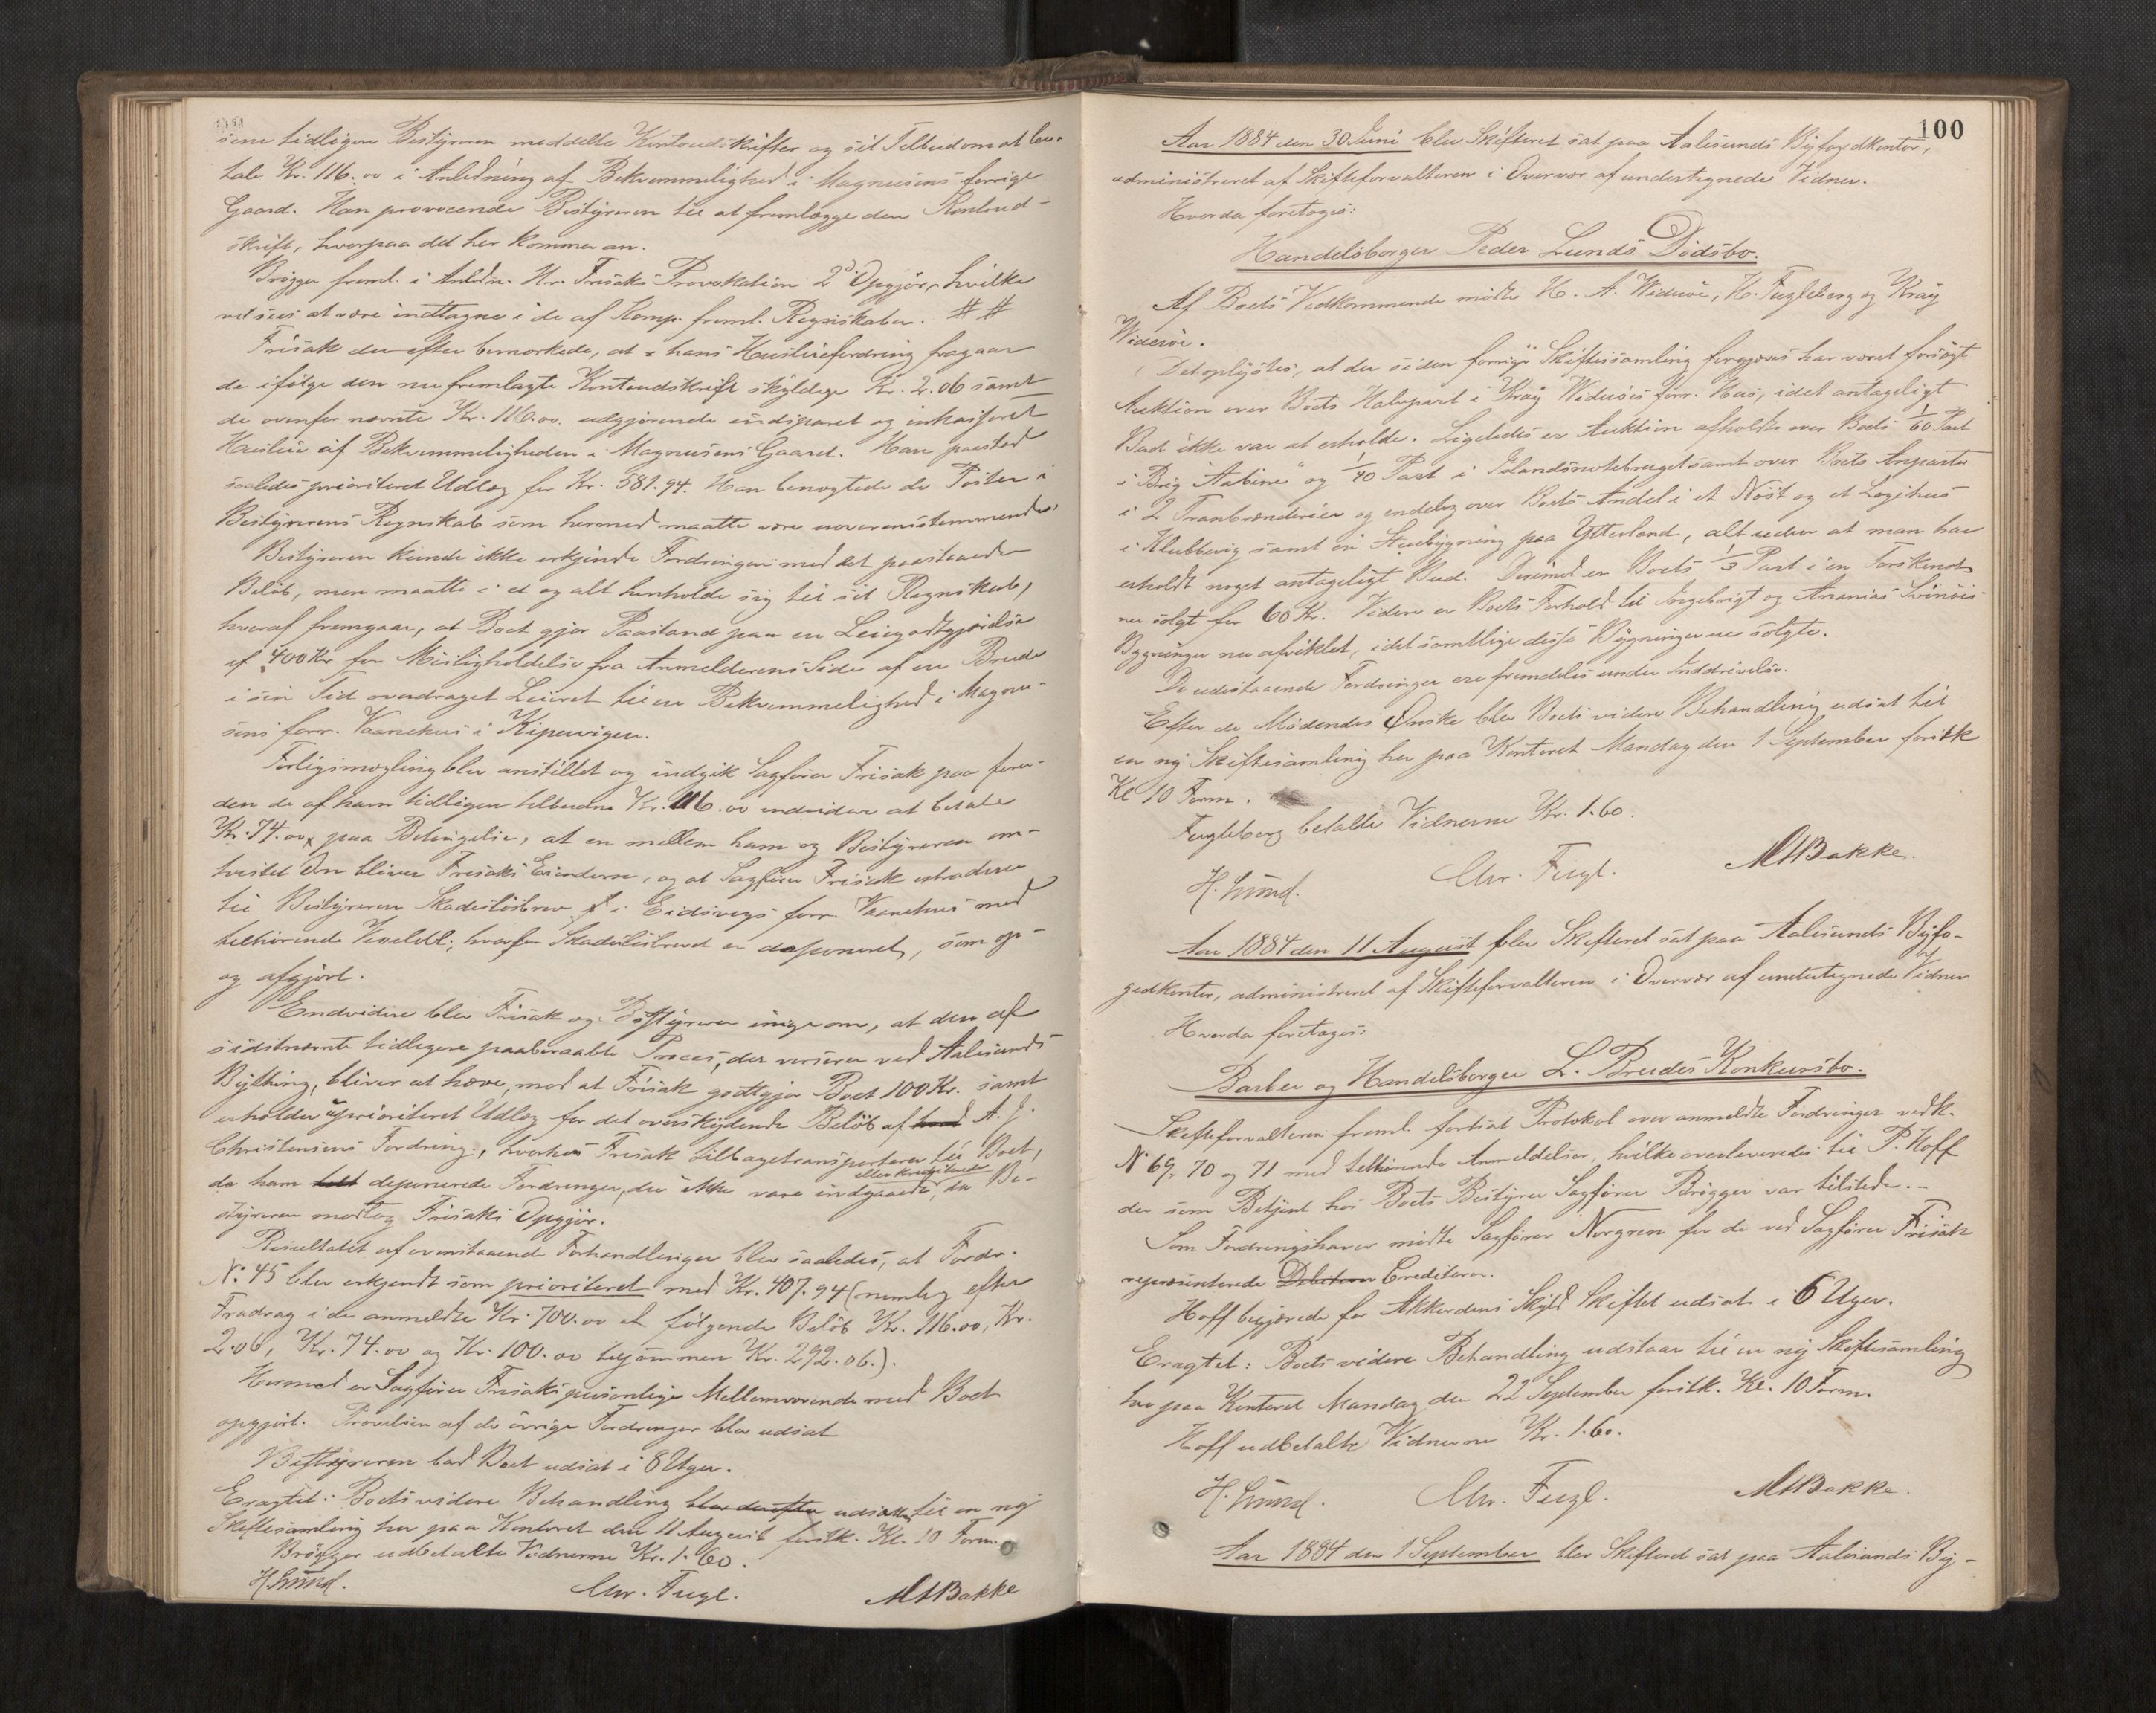 sine tidligere Bestyreren meddelte Kontoudskrifter og sit Tilbud om at be-
tale Kr. 116.00 i Anledning af Bekvemmelighed i Magnusens forrige
Gaard. Han provocerede Bestyreren til at fremlægge den Kontoud-
skrift, hvorpaa det her kommer an.
Brögger freml. i Anledn. Hr. Frisaks Provokation 2de Opgjör, hvilke
vil sees at være indtagne i de af Komp. freml. Regnskaber. ##
Frisak derefter bemærkede, at i hans Huusleiefordring fragaar
de ifölge den nu fremlagte Kontoudskrift skyldige Kr. 2.06 samt
de ovenfor nævnte Kr. 116.00. udgjörende indsparet og inkasseret
Huusleie af Bekvemmeligheden i Magnusens Gaard. Han paastod
saaledes prioriteret Udlæg for Kr. 581.94. Han benægtede de Poster i
Bestyrerens Regnskab som hermed maatte være uoverensstemmende.
Bestyreren kunde ikke erkjende Fordringen med det paastaaede
Belöb, men maatte i et og alt henholde sig til sit Regnskab,
hvoraf fremgaar, at Boet gjör Paastand paa en Leiegodtgjörelse
af 400 Kr for Misligholdelse fra Anmelderens Side af en Brude
i sin Tid overdraget Leieret til en Bekvemmelighed i Magnu-
sens forr. Vaanehus i Kipervigen.
Forligsmægling blev anstillet og indgik Sagförer Frisak paa foru-
den de af ham tidligere tilbudne Kr. 116.00 endvidere at betale
Kr. 74.00, paa Betingelse, at en mellem ham og Bestyreren om-
tvistet Ovn bliver Frisaks Eiendom, og at Sagförer Frisak extraderer
til Bestyreren Skadeslösbrev i Eidsvigs forr. Vaanehus med
tilhörende Vexeldel.; hvorfor Skadeslösbrevet er deponeret, som op-
og afgjort.
Endvidere blev Frisak og Bestyreren enige om, at den af
sidstnævnte tidligere paaberaabte Proces, der verserer ved Aalesunds
Bything, bliver at hæve, mod at Frisak godtgjör Boet 100 Kr. samt
erholder uprioriteret Udlæg for det overskydende Belöb af A. J.
Christensens Fordring:, hvorhos Frisak tilbagetransporterer til Boet,
de ham deponerede Fordringer, der ikke vare indgaaede eller krediterede, da Be-
styreren modtog Frisaks Opgjör.
Resultatet af ovenstaaende Forhandlinger blev saaledes, at Fordr.
No. 45 blev erkjendt som prioriteret med Kr. 407.94 (nemlig efter
Fradrag i de anmeldte Kr. 700.00 af fölgende Belöb Kr. 116.00, Kr.
2.06, Kr. 74.00 og Kr. 100.00 tilsammen Kr. 292.06.).
Hermed er Sagförer Frisaks personlige Mellemværende med Boet
opgjört. Prövelsen af de övrige Fordringer blev udsat
Bestyreren bad Boet udsat i 8 Uger.
Eragtet: Boets videre Behandling blev derefter udsættes til en ny
Skiftesamling her paa Kontoret den 11 August förstk. Kl. 10 Form.
Brögger udbetalte Vidnerne Kr. 1.60.
H. Lund. Chr. Fugl. M Bakke
100
Aar 1884 den 30 Juni blev Skifteret sat paa Aalesunds Byfogedkontor,
administreret af Skifteforvalteren i Overvær af undertegnede Vidner.
Hvorda foretoges:
Handelsborger Peder Lunds Dödsbo.
Af Boets Vedkommende mödte H. A. Wideröe, H. Fugleberg og Kraÿ
Wideröe.
Det oplystes, at der siden forrige Skiftessamling forgjæves har været forsögt
Auktion over Boets Halvpart i Kraÿ Wideröes forr. Hus, idet antageligt
Bud ikke var at erholde. Ligeledes er Auktion afholdt over Boets 1/60 Part
i Brig "Sabine" og 1/40 Part i Islandsnotebruget samt over Boets Anparter
i 2 Tranbrænderier og endelig over Boets Andel i et Nöst og et Logihus
i Klubbevig samt en Steenbygning paa Ytterland, alt uden at man har
erholdt noget antageligt Bud. Derimod er Boets 1/3 Part i en Torskenot
nu solgt for 60 Kr. Videre er Boets Forhold til Ingebrigt og Ananias Svinöes
Bygninger nu afviklet, idet samtlige disse Bygninger nu solgte.
De udestaaende Fordringer ere fremdeles under Inddrivelse.
Efter de Mödendes Önske blev Boets videre Behandling udsat til
en ny Skiftesamling her paa Kontoret Mandag den 1 September förstk
Kl 10 Form.
Fugleberg betalte Vidnerne Kr. 1.60.
H. Lund. Chr. Fugl. M Bakke.
Aar 1884 den 11 August blev Skifteret sat paa Aalesunds Byfo-
gedkontor, administreret af Skifteforvalteren i Overvær af undertegnede Vidner
Hvorda foretoges:
Barber og Handelsborger L. Brudes Konkursbo.
Skifteforvalteren freml. fortsat Protokol over anmeldte Fordringer vedk.
No 69, 70 og 71 med tilhörende Anmeldelser, hvilke overleveredes til P. Hoff
der som Betjent hos Boets Bestyrer Sagförer Brögger var tilstede.-
Som Fordringshaver mödte Sagförer Norgren for de ved Sagförer Frisak
repræsenterede Debitorer Creditorer.
Hoff begjærede for Akkordens Skyld Skiftet udsat i 6 Uger.
Eragtet: Boets videre Behandling udstaar til en ny Skiftesamling
her paa Kontoret Mandag den 22 September förstk. Kl. 10 Form.
Hoff udbetalte Vidnerne Kr. 1.60.
H. Lund. Chr. Fugl. M Bakke.
Aar 1884 den 1 September blev Skifteret sat paa Aalesunds By-